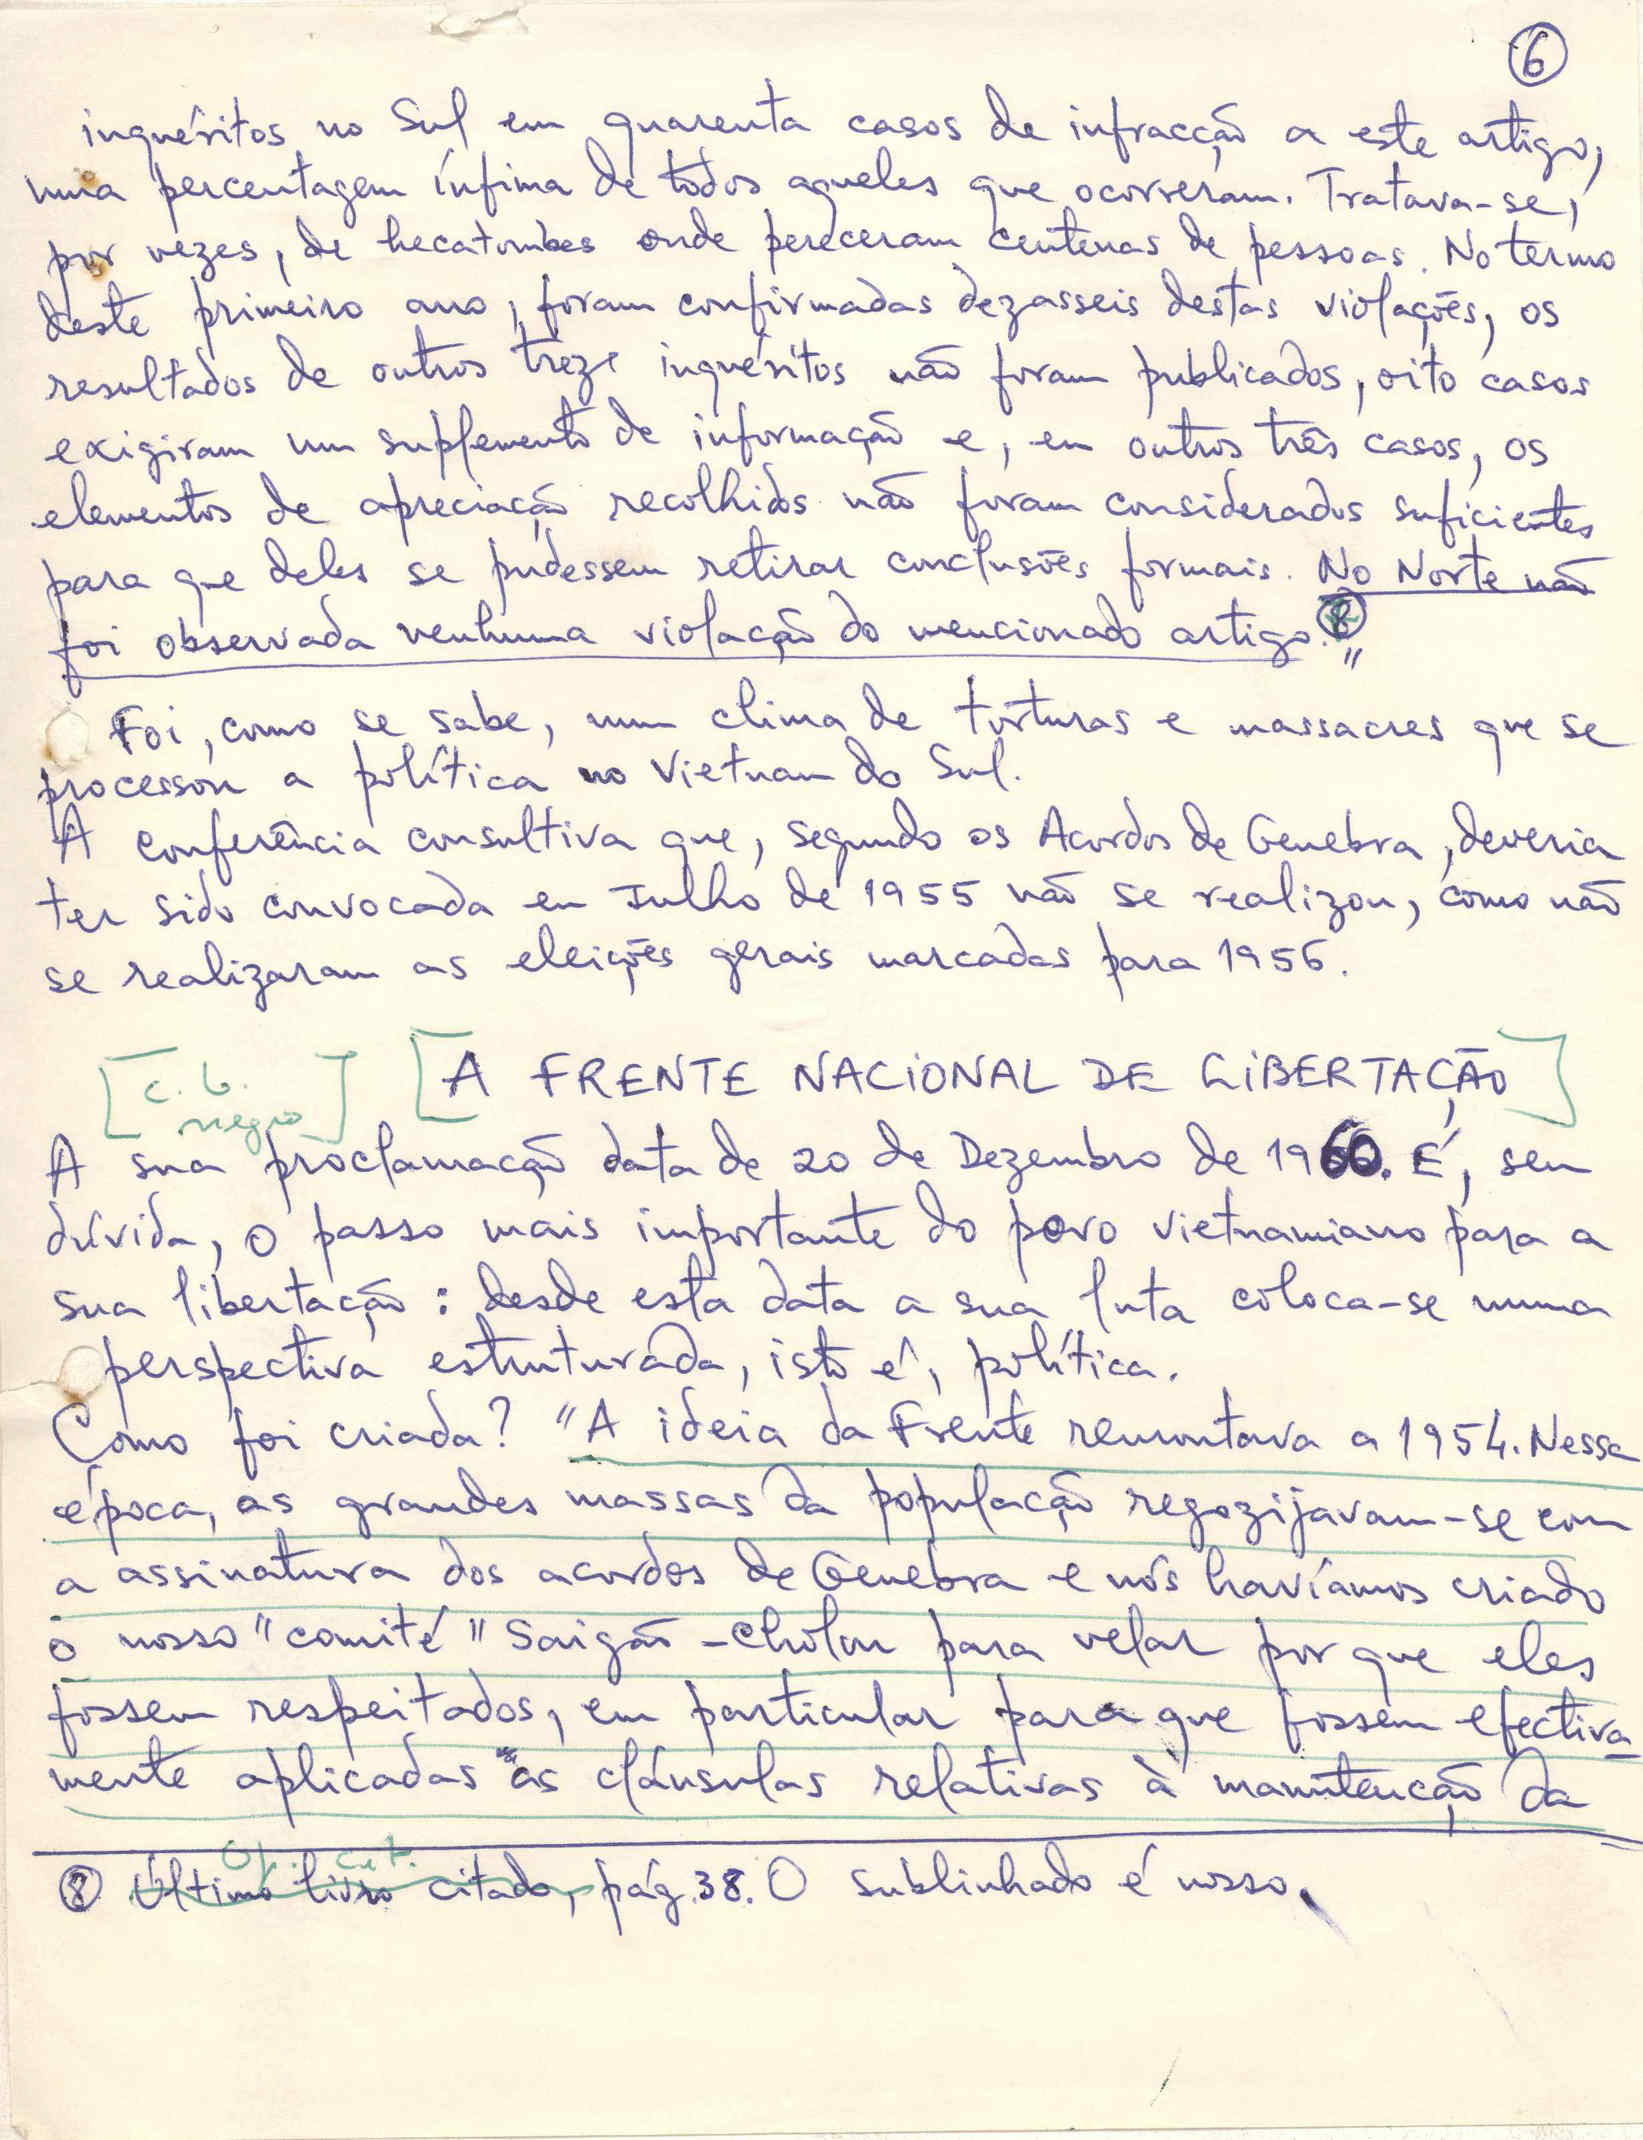 6
inquéritos no Sul em quarenta casos de infracção a este artigo,
uma percentagem ínfima de todos aqueles que ocorreram. Tratava-se,
por vezes, de hecatombes onde pereceram centenas de pessoas. No termo
deste primeiro ano, foram confirmadas dezasseis destas violações, os
resultados de outros treze inquéritos não foram publicados, oito casos
exigiram um suplemento de informação e, em outros três casos, os
elementos de apreciação recolhidos não foram considerados suficientes
para que deles se pudessem retirar conclusões formais. No Norte não
foi observada nenhuma violação do mencionado artigo. 8"
Foi, como se sabe, num clima de torturas e massacres que se
processou a política no Vietnam do Sul.
A conferência consultiva que, segundo os Acordos de Genebra, deveria
ter sido convocada em Julho de 1955 não se realizou, como não
se realizaram as eleições gerais marcadas para 1956.
[c. b. negro] [A FRENTE NACIONAL DE LIBERTAÇÃO]
A sua proclamação data de 20 de Dezembro de 1960. É, sem
dúvida, o passo mais importante do povo vietnamiano para a
sua libertação: desde esta data a sua luta coloca-se numa
perspectiva estruturada, isto é, política.
Como foi criada? "A ideia da Frente remontava a 1954. Nessa
época, as grandes massas da população regozijavam-se com
a assinatura dos acordos de Genebra e nós havíamos criado
o nosso "comité" Saigão-Cholon para velar por que eles
fossem respeitados, em particular para que fossem efectiva-
mente aplicadas as cláusulas relativas à manutenção da
Op. cit.
8 Último livro citado, pág. 38. O sublinhado é nosso.